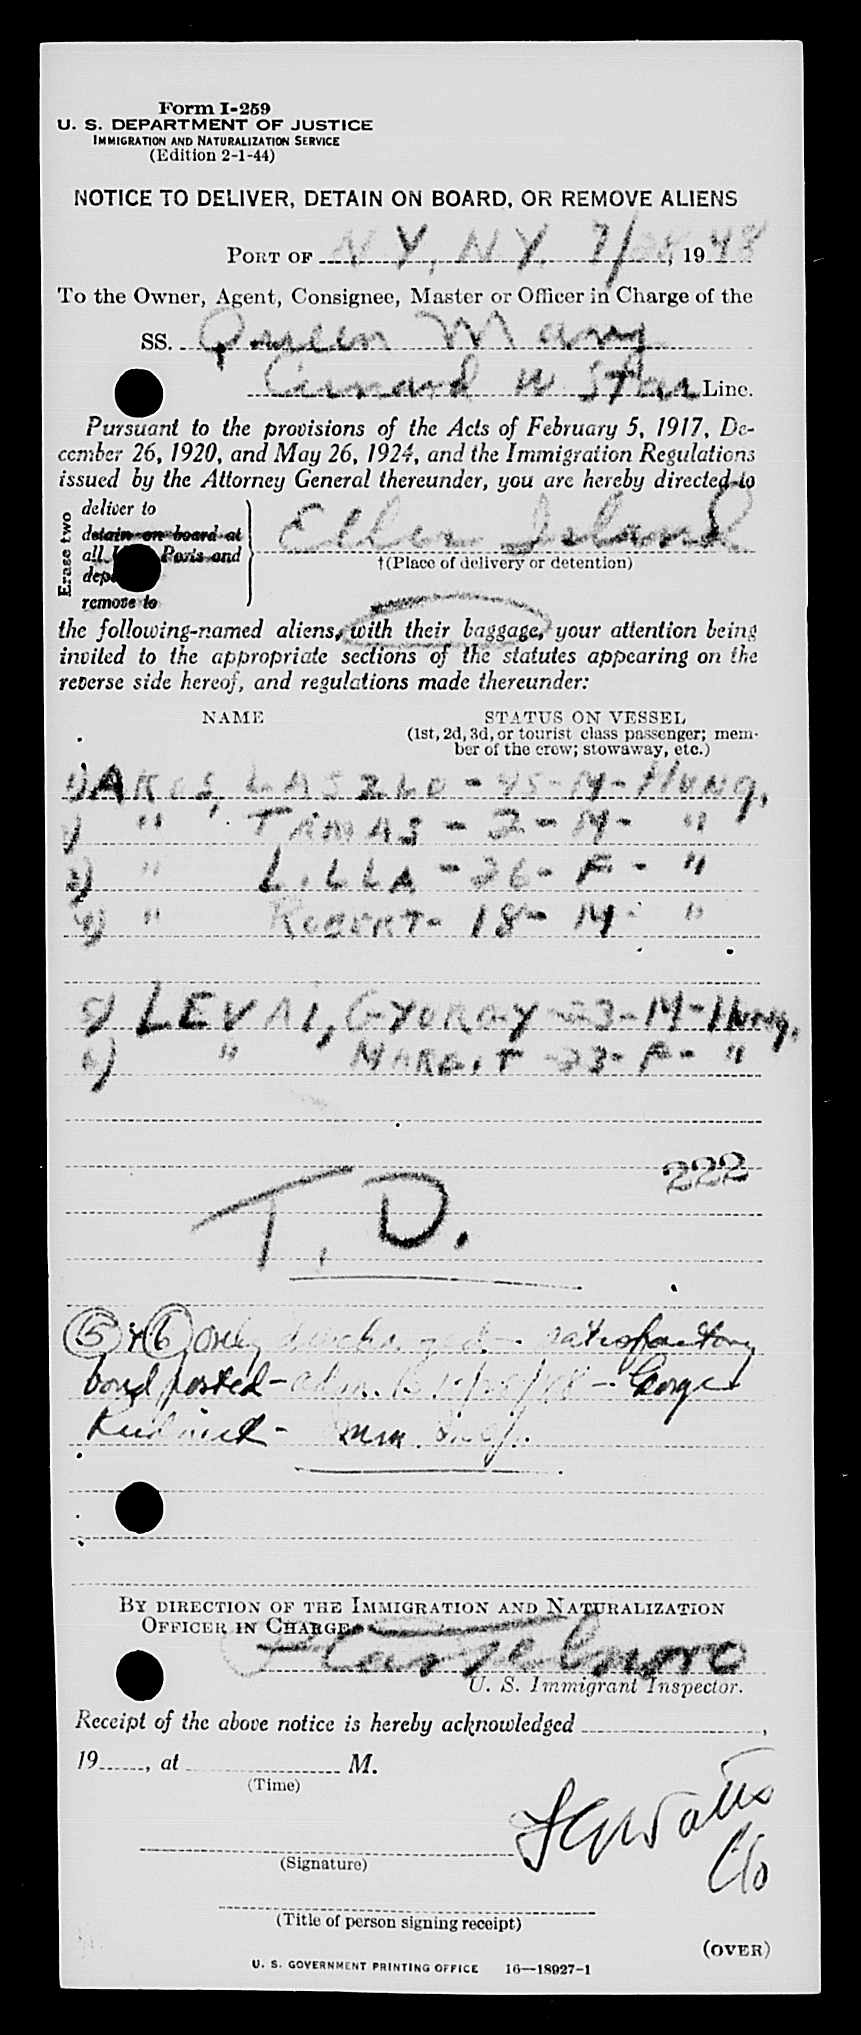 Form I-259
U. S. DEPARTMENT OF JUSTICE
IMMIGRATION AND NATURALIZATION SERVICE
(Edition 2-1-44)
NOTICE TO DELIVER, DETAIN ON BOARD, OR REMOVE ALIENS
PORT OF NY, NY. 7/28, 1948
To the Owner, Agent, Consignee, Master or Officer in Charge of the
SS. Queen Mary
Cunard W Star Line.
Pursuant to the provisions of the Acts of February 5, 1917, De-
cember 26, 1920, and May 26, 1924, and the Immigration Regulations
issued by the Attorney General thereunder, you are hereby directed to
Erase two
deliver to
detain on board at
all Ports and
remove to
Ellis Island
†(Place of delivery or detention)
the following-named aliens, with their baggage, your attention being
invited to the appropriate sections of the statutes appearing on the
reverse side hereof, and regulations made thereunder:
NAME STATUS ON VESSEL
(1st, 2d, 3d, or tourist class passenger; mem-
ber of the crew; stowaway, etc.)
1) AKOS, LASZLO - 45 - M - Hung,
") " TAMAS - 2 - M - "
3) " LILLA - 26 - F - "
4) " ROBERT - 18 - M - "
5) LEVAI, GYORGY - 23 - M - Hung,
6) " MARGIT - 23 - F - "
222
T. D.
5 & 6 only discharged - satisfactory
bond posted - - George
- Imm Insp.
BY DIRECTION OF THE IMMIGRATION AND NATURALIZATION
OFFICER IN CHARGE
U. S. Immigrant Inspector.
Receipt of the above notice is hereby acknowledged ,
19 , at M.
(Time)
Watts
(Signature)
C/o
(Title of person signing receipt)
(OVER)
U. S. GOVERNMENT PRINTING OFFICE 16—18927-1